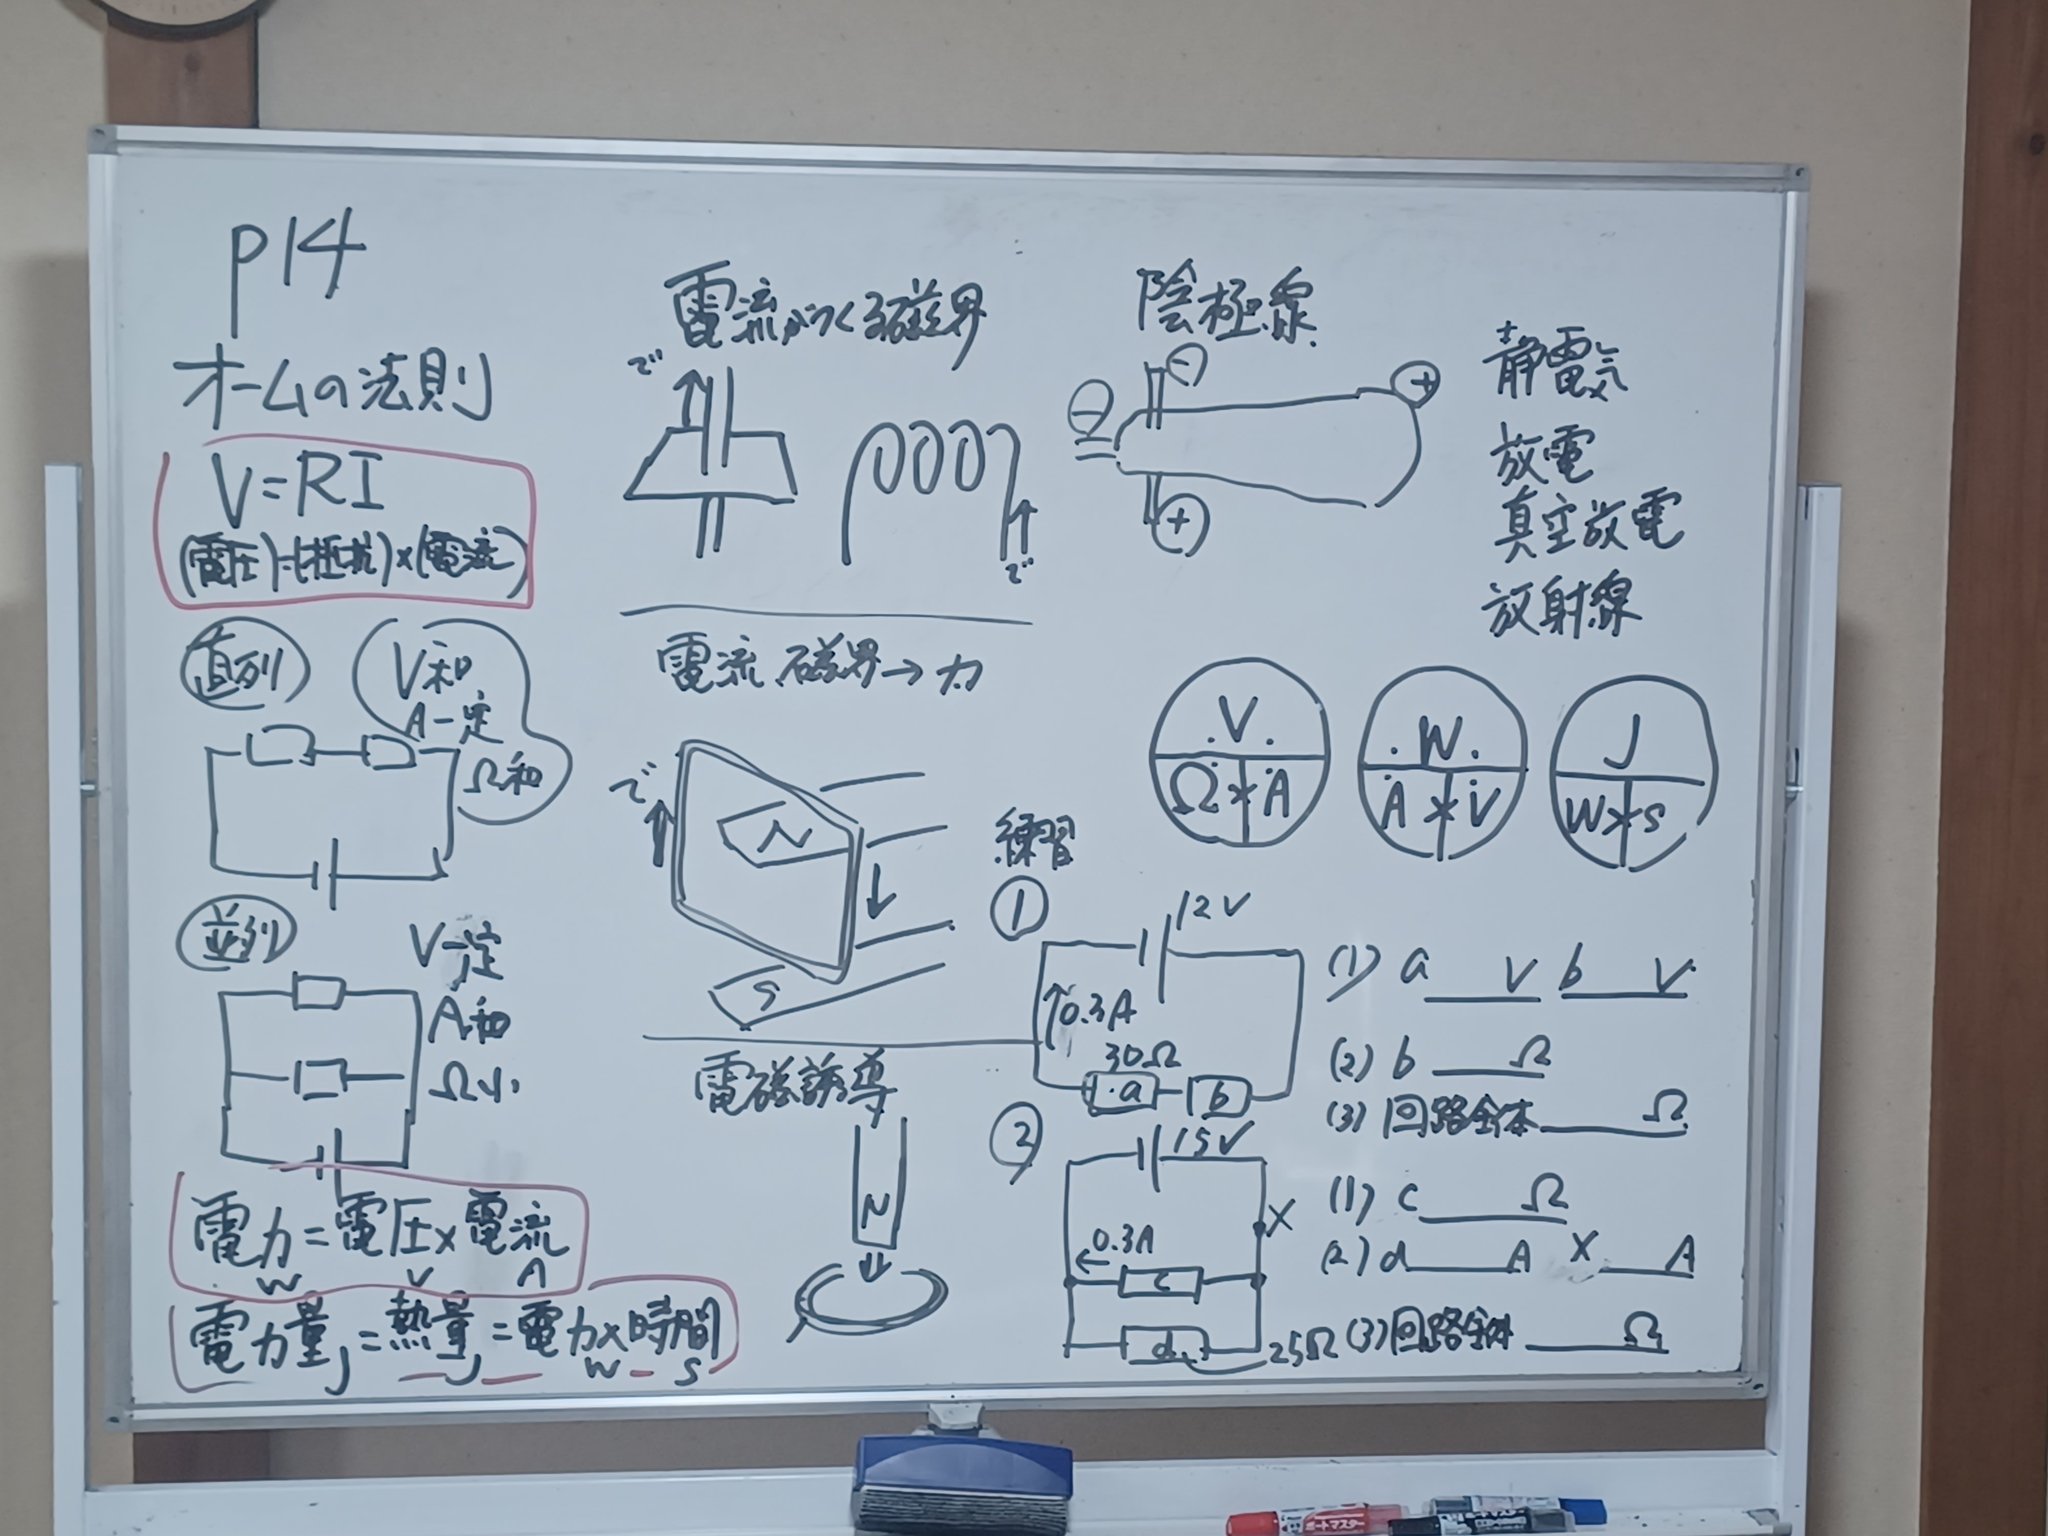 p14
オームの法則
V=RI
(電圧)=(抵抗)×(電流)
直列
V和
A一定
Ω和
並列
V一定
A和
Ω小
電力=電圧×電流
W V A
電力量J=熱量J=電力×時間
W S
電流がつくる磁界
で
で
電流、磁界→力
で
N
S
電磁誘導
N
陰極線
⊖
⊖
⊕
⊕
静電気
放電
真空放電
放射線
V
Ω × A
W
A × V
J
W × s
練習
①
12V
0.3A
30Ω
a
b
(1) a V b V
(2) b Ω
(3) 回路全体 Ω
②
15V
X
0.3A
c
d
25Ω
(1) c Ω
(2) d A X A
(3) 回路全体 Ω
ボードマスター